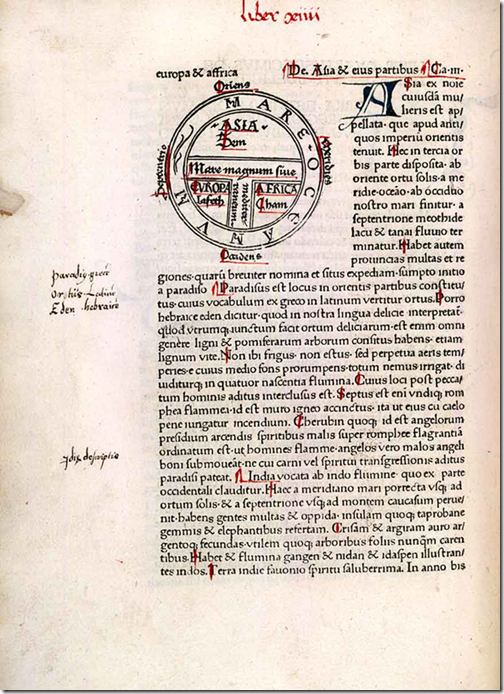 liber xiiii
europa & affrica
De Asia & eius partibus Ca·iii·
Oriens
MARE OCEANUM
ASIA
Sem
Septentrio
Meridies
Mare magnum siue
mediterraneum
EVROPA
Iafeth
AFRICA
Cham
Occidens
Asia ex noīe
cuiusdā mu/
lieris est ap/
pellata· que apud anti/
quos imperiū orientis
tenuit. Hec in tercia or
bis parte disposita· ab
oriente ortu solis· a me
ridie·oceāo· ab occiduo
nostro mari finitur· a
septentrione meothide
lacu & tanai fluuio ter
minatur. Habet autem
prouincias multas et re
giones·quarū breuiter nomina et situs expediam·sumpto initio
a paradiso Paradisus est locus in orientis partibus constitu/
tus·cuius vocabulum ex greco in latinum vertitur ortus. Porro
hebraice eden dicitur·quod in nostra lingua delicie interpretat̄·
Quod vtrumq; iunctum facit ortum deliciarum·est enim omni
genere ligni & pomiferarum arborum consitus habens· etiam
lignum vite. Non ibi frigus· non estus· sed perpetua aeris tem/
peries·e cuius medio fons prorumpens·totum nemus irrigat· di
uiditurq; in quatuor nascentia flumina. Cuius loci post pecca/
tum hominis aditus interclusus est. Septus est eni vndiq; rom
phea flammea·id est muro igneo accinctus· ita ut eius cum celo
pene iungatur incendium. Cherubin quoq; id est angelorum
presidium arcendis spiritibus malis super romphee flagrantiā
ordinatum est·ut homines flamme·angelos vero malos angeli
boni submoueāt·ne cui carni vel spiritui transgressionis aditus
paradisi pateat. India vocata ab indo flumine· quo ex parte
occidentali clauditur. Haec a meridiano mari porrecta vsq; ad
ortum solis· & a septentrione vsq; ad montem caucasum perue/
nit·habens gentes multas & oppida· insulam quoq; taprobane
gemmis & elephantibus refertam. Crisam & argiram auro ar/
gentoq; fecundas·vtilem quoq; arboribus foliis nunq̄m caren
tibus. Habet & flumina gangen & nidan & idaspen illustran/
tes indos. Terra indie fauonio spiritu saluberrima. In anno bis
paradis· grece
Ortus· Latine
Eden· hebraice
Idie descriptio